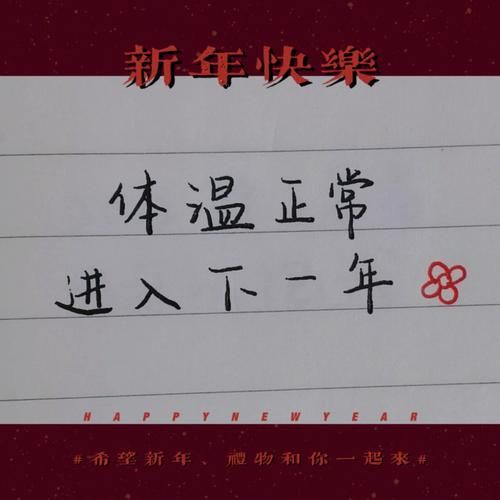 新年快樂
体温正常
进入下一年
HAPPYNEWYEAR
#希望新年、禮物和你一起來#